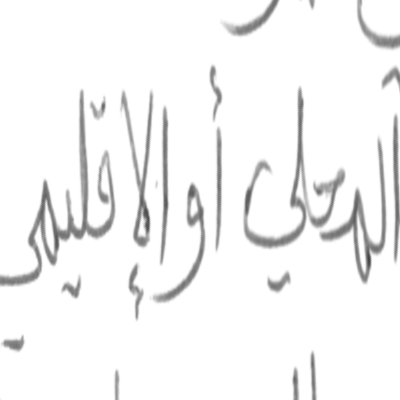 المحلي أو الإقليمي